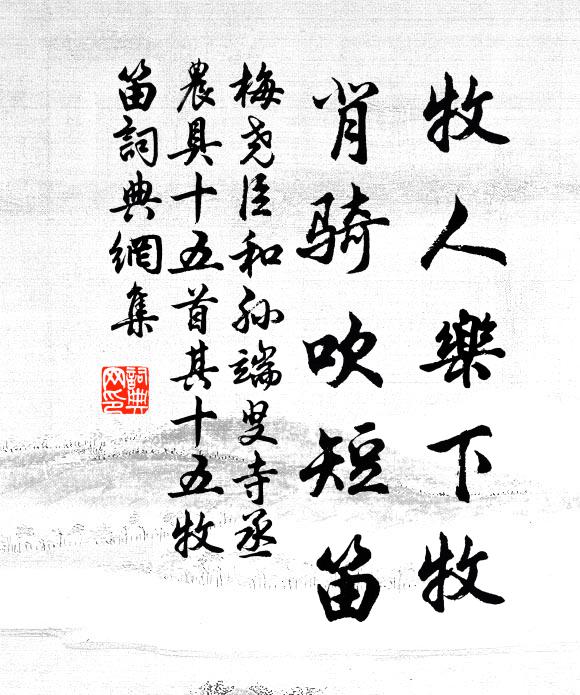 牧人樂下牧
背骑吹短笛
梅尧臣和孙端叟寺丞
農具十五首其十五牧
笛詞典網集
詞典
网印